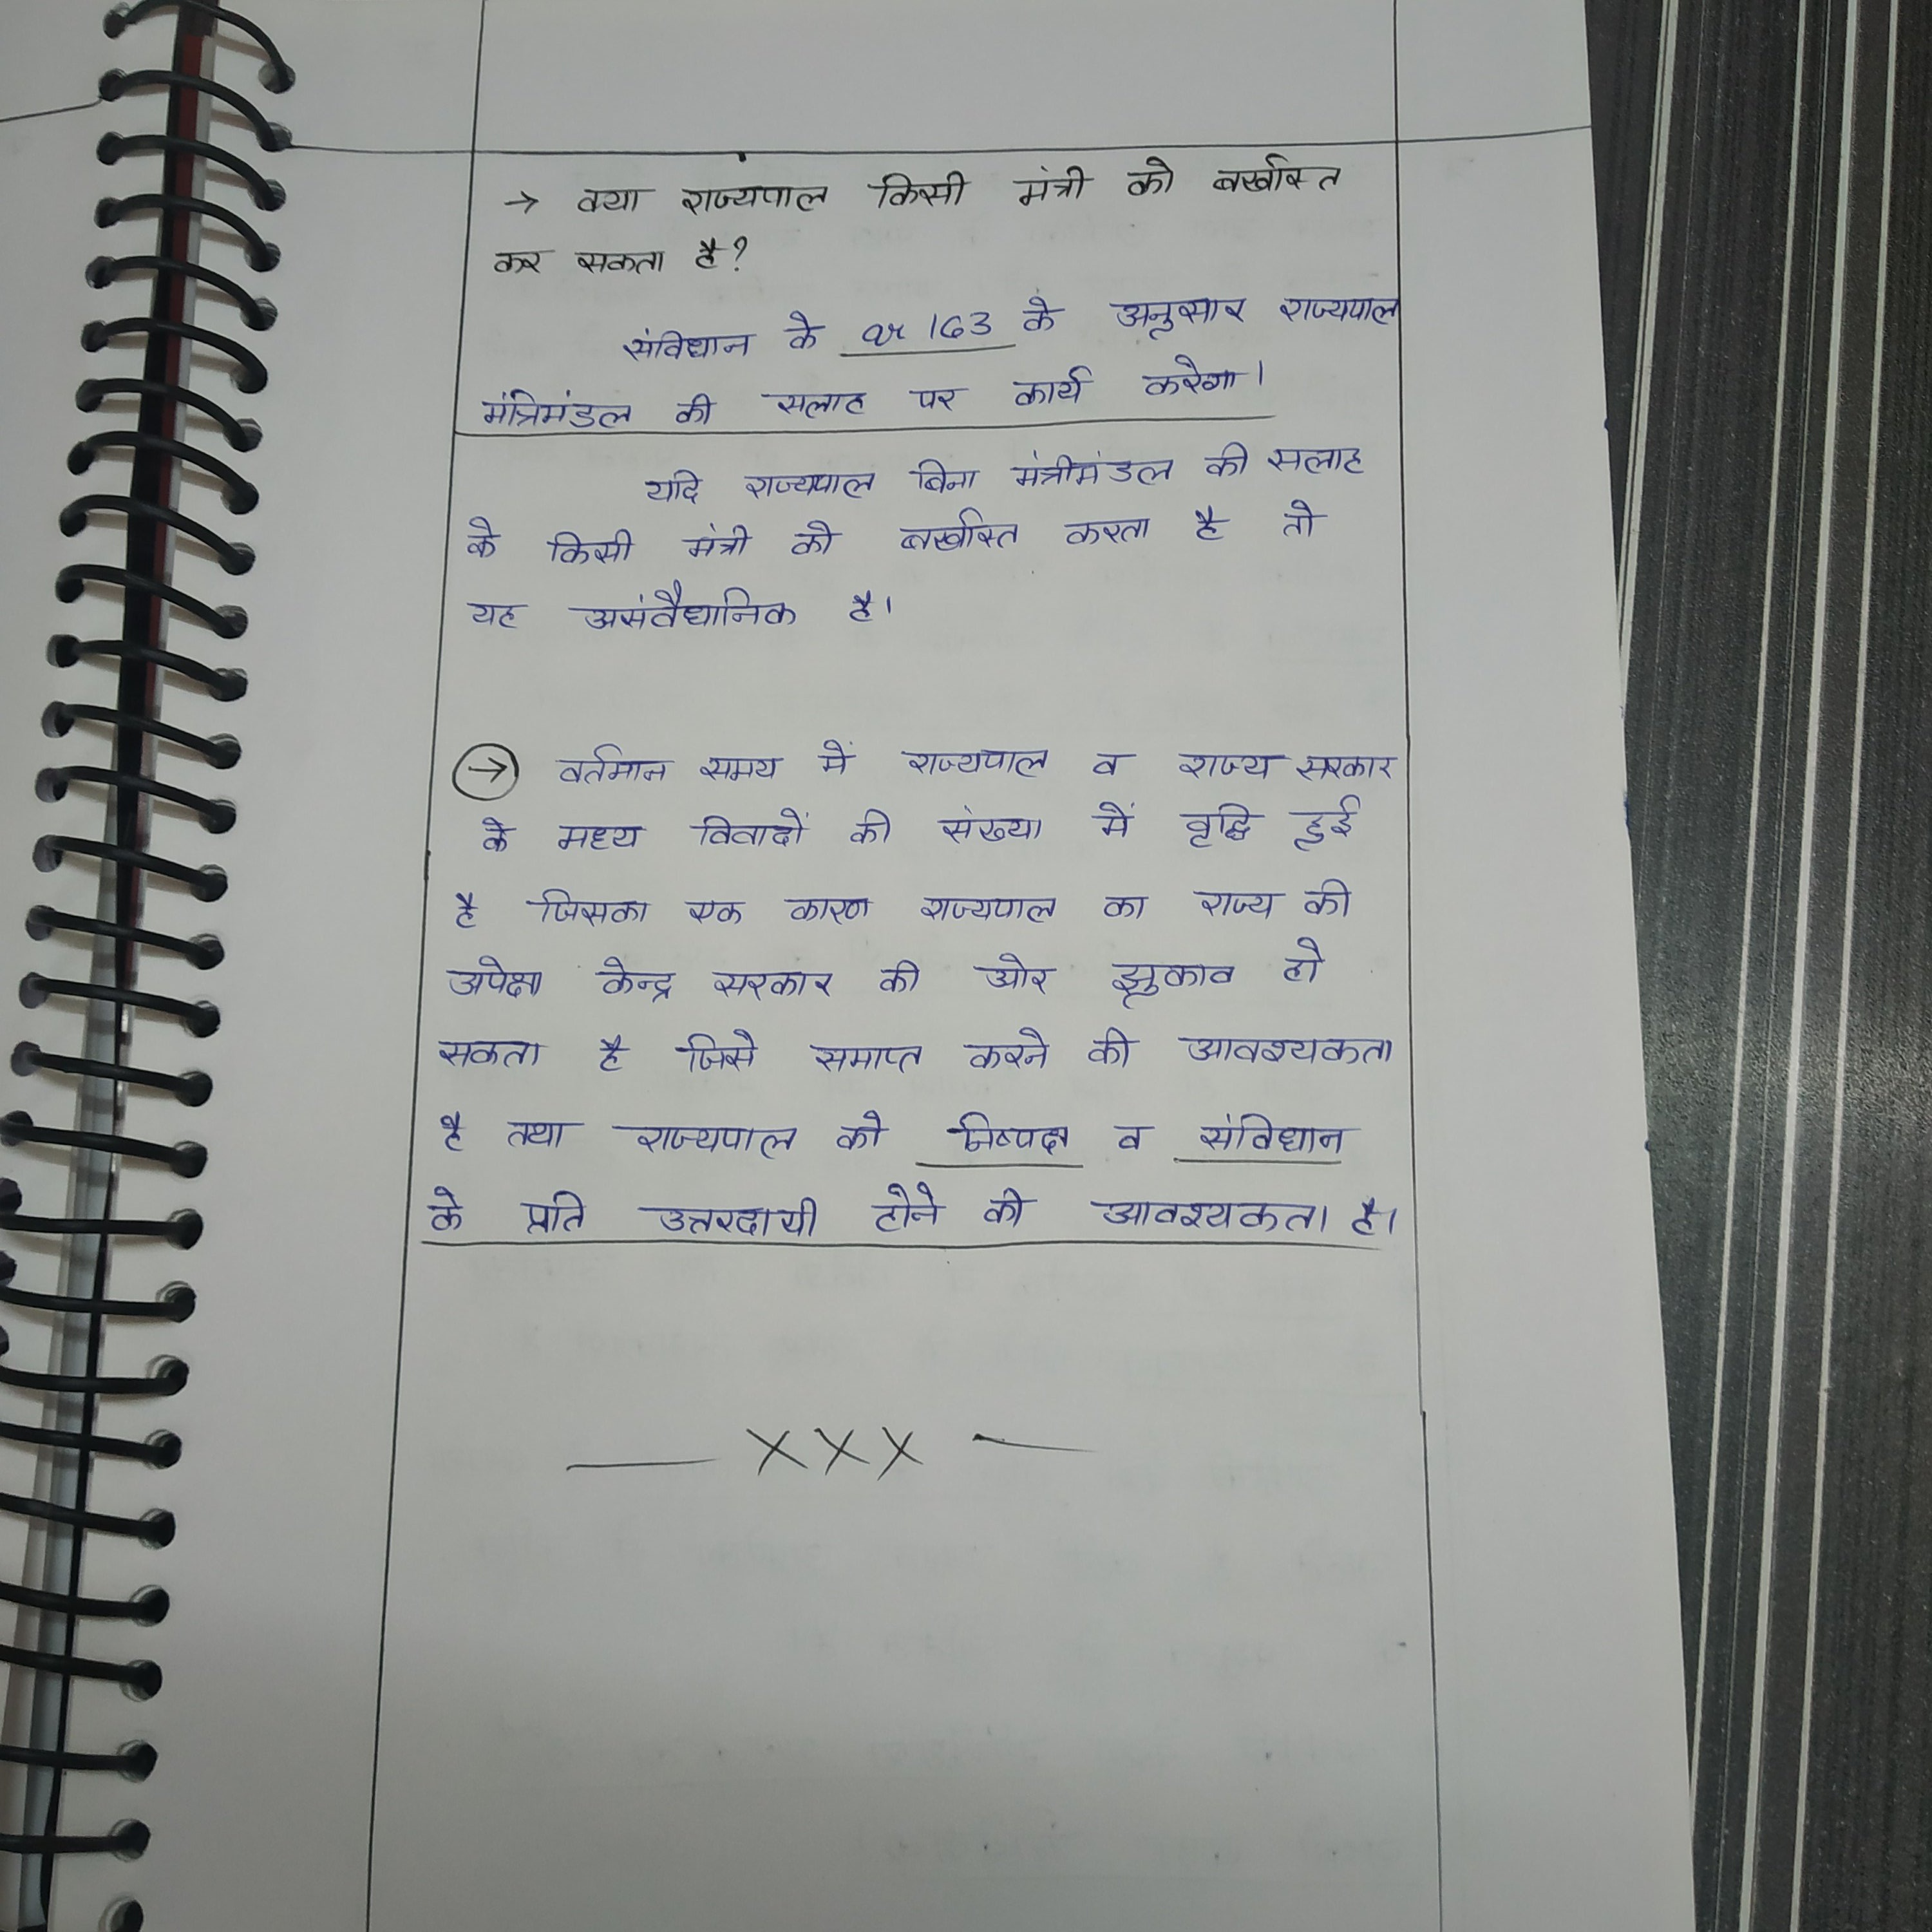 → क्या राज्यपाल किसी मंत्री को बर्खास्त
कर सकता है?
संविधान के ar 163 के अनुसार राज्यपाल
मंत्रिमंडल की सलाह पर कार्य करेगा।
यदि राज्यपाल बिना मंत्रीमंडल की सलाह
के किसी मंत्री को बर्खास्त करता है तो
यह असंवैधानिक है।
→ वर्तमान समय में राज्यपाल व राज्य सरकार
के मध्य विवादों की संख्या में वृद्धि हुई
है जिसका एक कारण राज्यपाल का राज्य की
अपेक्षा केन्द्र सरकार की ओर झुकाव हो
सकता है जिसे समाप्त करने की आवश्यकता
है तथा राज्यपाल को निष्पक्ष व संविधान
के प्रति उत्तरदायी होने की आवश्यकता है।
— XXX —